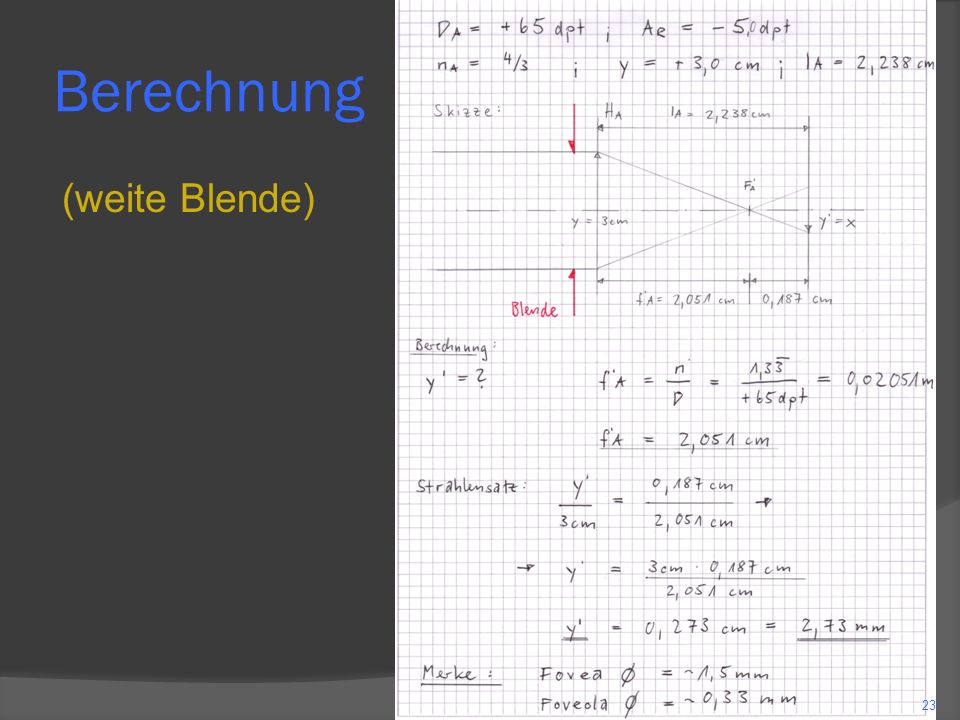 Berechnung
(weite Blende)
DA = +65 dpt ; Ae = -5,0 dpt
nA = 4/3 ; y = +3,0 cm ; lA = 2,238 cm
Skizze: HA lA = 2,238 cm
F'A
y = 3cm
y' = x
Blende
f'A = 2,051 cm 0,187 cm
Berechnung:
y' = ?
f'A = n' / D = 1,33̅ / +65 dpt = 0,02051 m
f'A = 2,051 cm
Strahlensatz: y' / 3cm = 0,187 cm / 2,051 cm →
→ y' = 3cm · 0,187 cm / 2,051 cm
y' = 0,273 cm = 2,73 mm
Merke: Fovea ∅ = ~1,5 mm
Foveola ∅ = ~ 0,33 mm
23